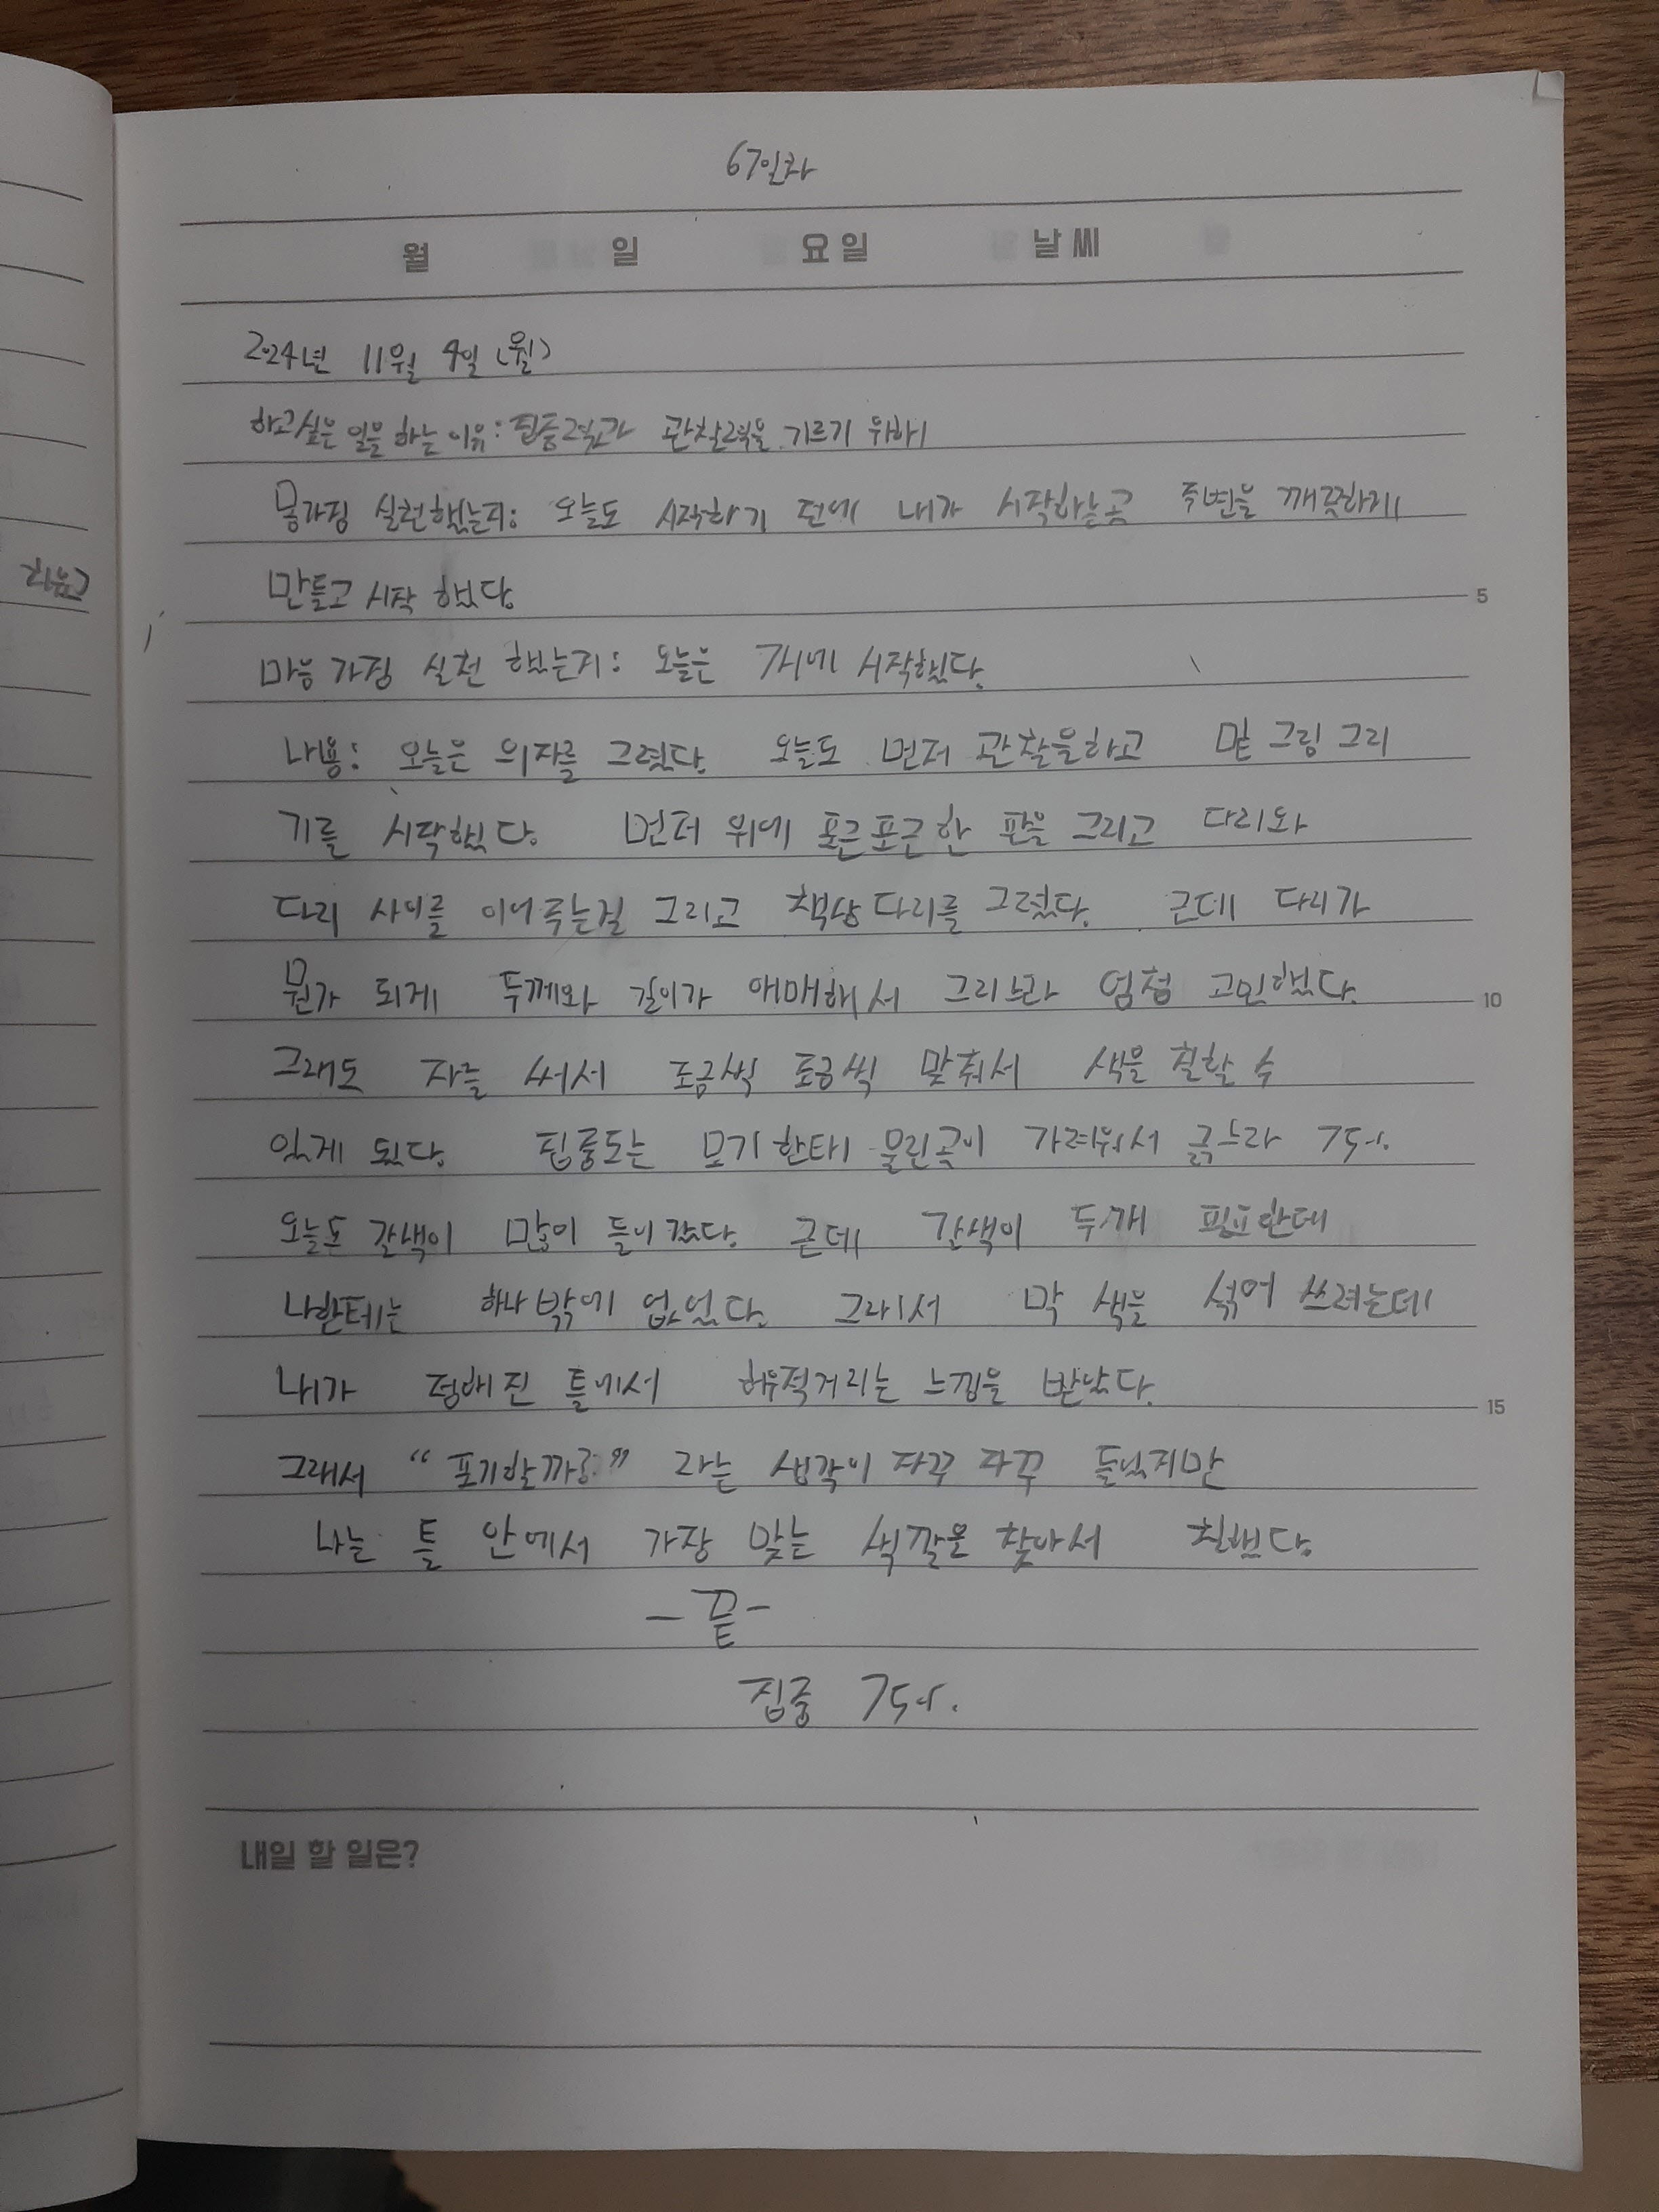 67일차
월 일 요일 날씨
2024년 11월 4일 (월)
하고싶은 일을 하는 이유: 집중력과 관찰력을 기르기 위해
몸가짐 실천했는지: 오늘도 시작하기 전에 내가 시작하는곳 주변을 깨끗하게
만들고 시작 했다.
5
마음가짐 실천 했는지: 오늘은 7시에 시작했다.
내용: 오늘은 의자를 그렸다. 오늘도 먼저 관찰을하고 밑 그림 그리
기를 시작했다. 먼저 위에 푹근푹근한 판을 그리고 다리와
다리 사이를 이어주는걸 그리고 책상다리를 그렸다. 근데 다리가
뭔가 되게 두께와 길이가 애매해서 그리느라 엄청 고민했다.
10
그래도 자를 써서 조금씩 조금씩 맞춰서 색을 칠할 수
있게 됬다. 집중도는 모기한태 물린곳이 가려워서 긁느라 75%.
오늘도 갈색이 많이 들어갔다. 근데 갈색이 두개 필요한데
나한테는 하나 밖에 없었다. 그래서 막 색을 섞어 쓰려는데
내가 정해진 틀에서 허우적거리는 느낌을 받았다.
15
그래서 "포기할까?" 라는 생각이 자꾸 자꾸 들었지만
나는 틀 안에서 가장 맞는 색깔을 찾아서 칠했다.
-끝-
집중 75%.
내일 할 일은?